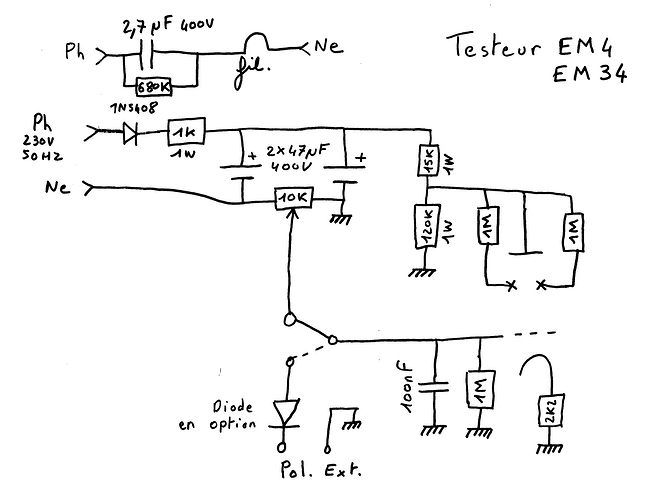 2,7µF 400V
Ph
Ne
fil.
680K
Testeur EM4
EM34
1N5408
Ph
230V
50HZ
1K
1W
+
2x47µF
400V
+
15K
1W
Ne
10K
120K
1W
1M
1M
100nF
1M
2K2
Diode
en option
Pol. Ext.